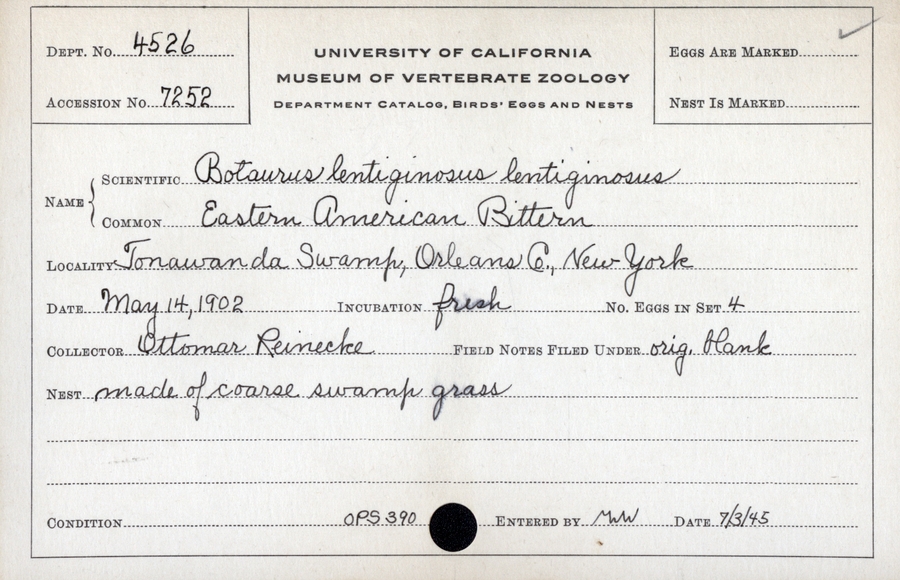 DEPT. No. 4526
ACCESSION No. 7252
UNIVERSITY OF CALIFORNIA
MUSEUM OF VERTEBRATE ZOOLOGY
DEPARTMENT CATALOG, BIRDS' EGGS AND NESTS
EGGS ARE MARKED
NEST IS MARKED
NAME
SCIENTIFIC Botaurus lentiginosus lentiginosus
COMMON Eastern American Bittern
LOCALITY Tonawanda Swamp, Orleans Co., New York
DATE May 14, 1902 INCUBATION fresh No. EGGS IN SET 4
COLLECTOR Ottomar Reinecke FIELD NOTES FILED UNDER orig. blank
NEST made of coarse swamp grass
CONDITION OPS 390 ENTERED BY DATE 7/3/45